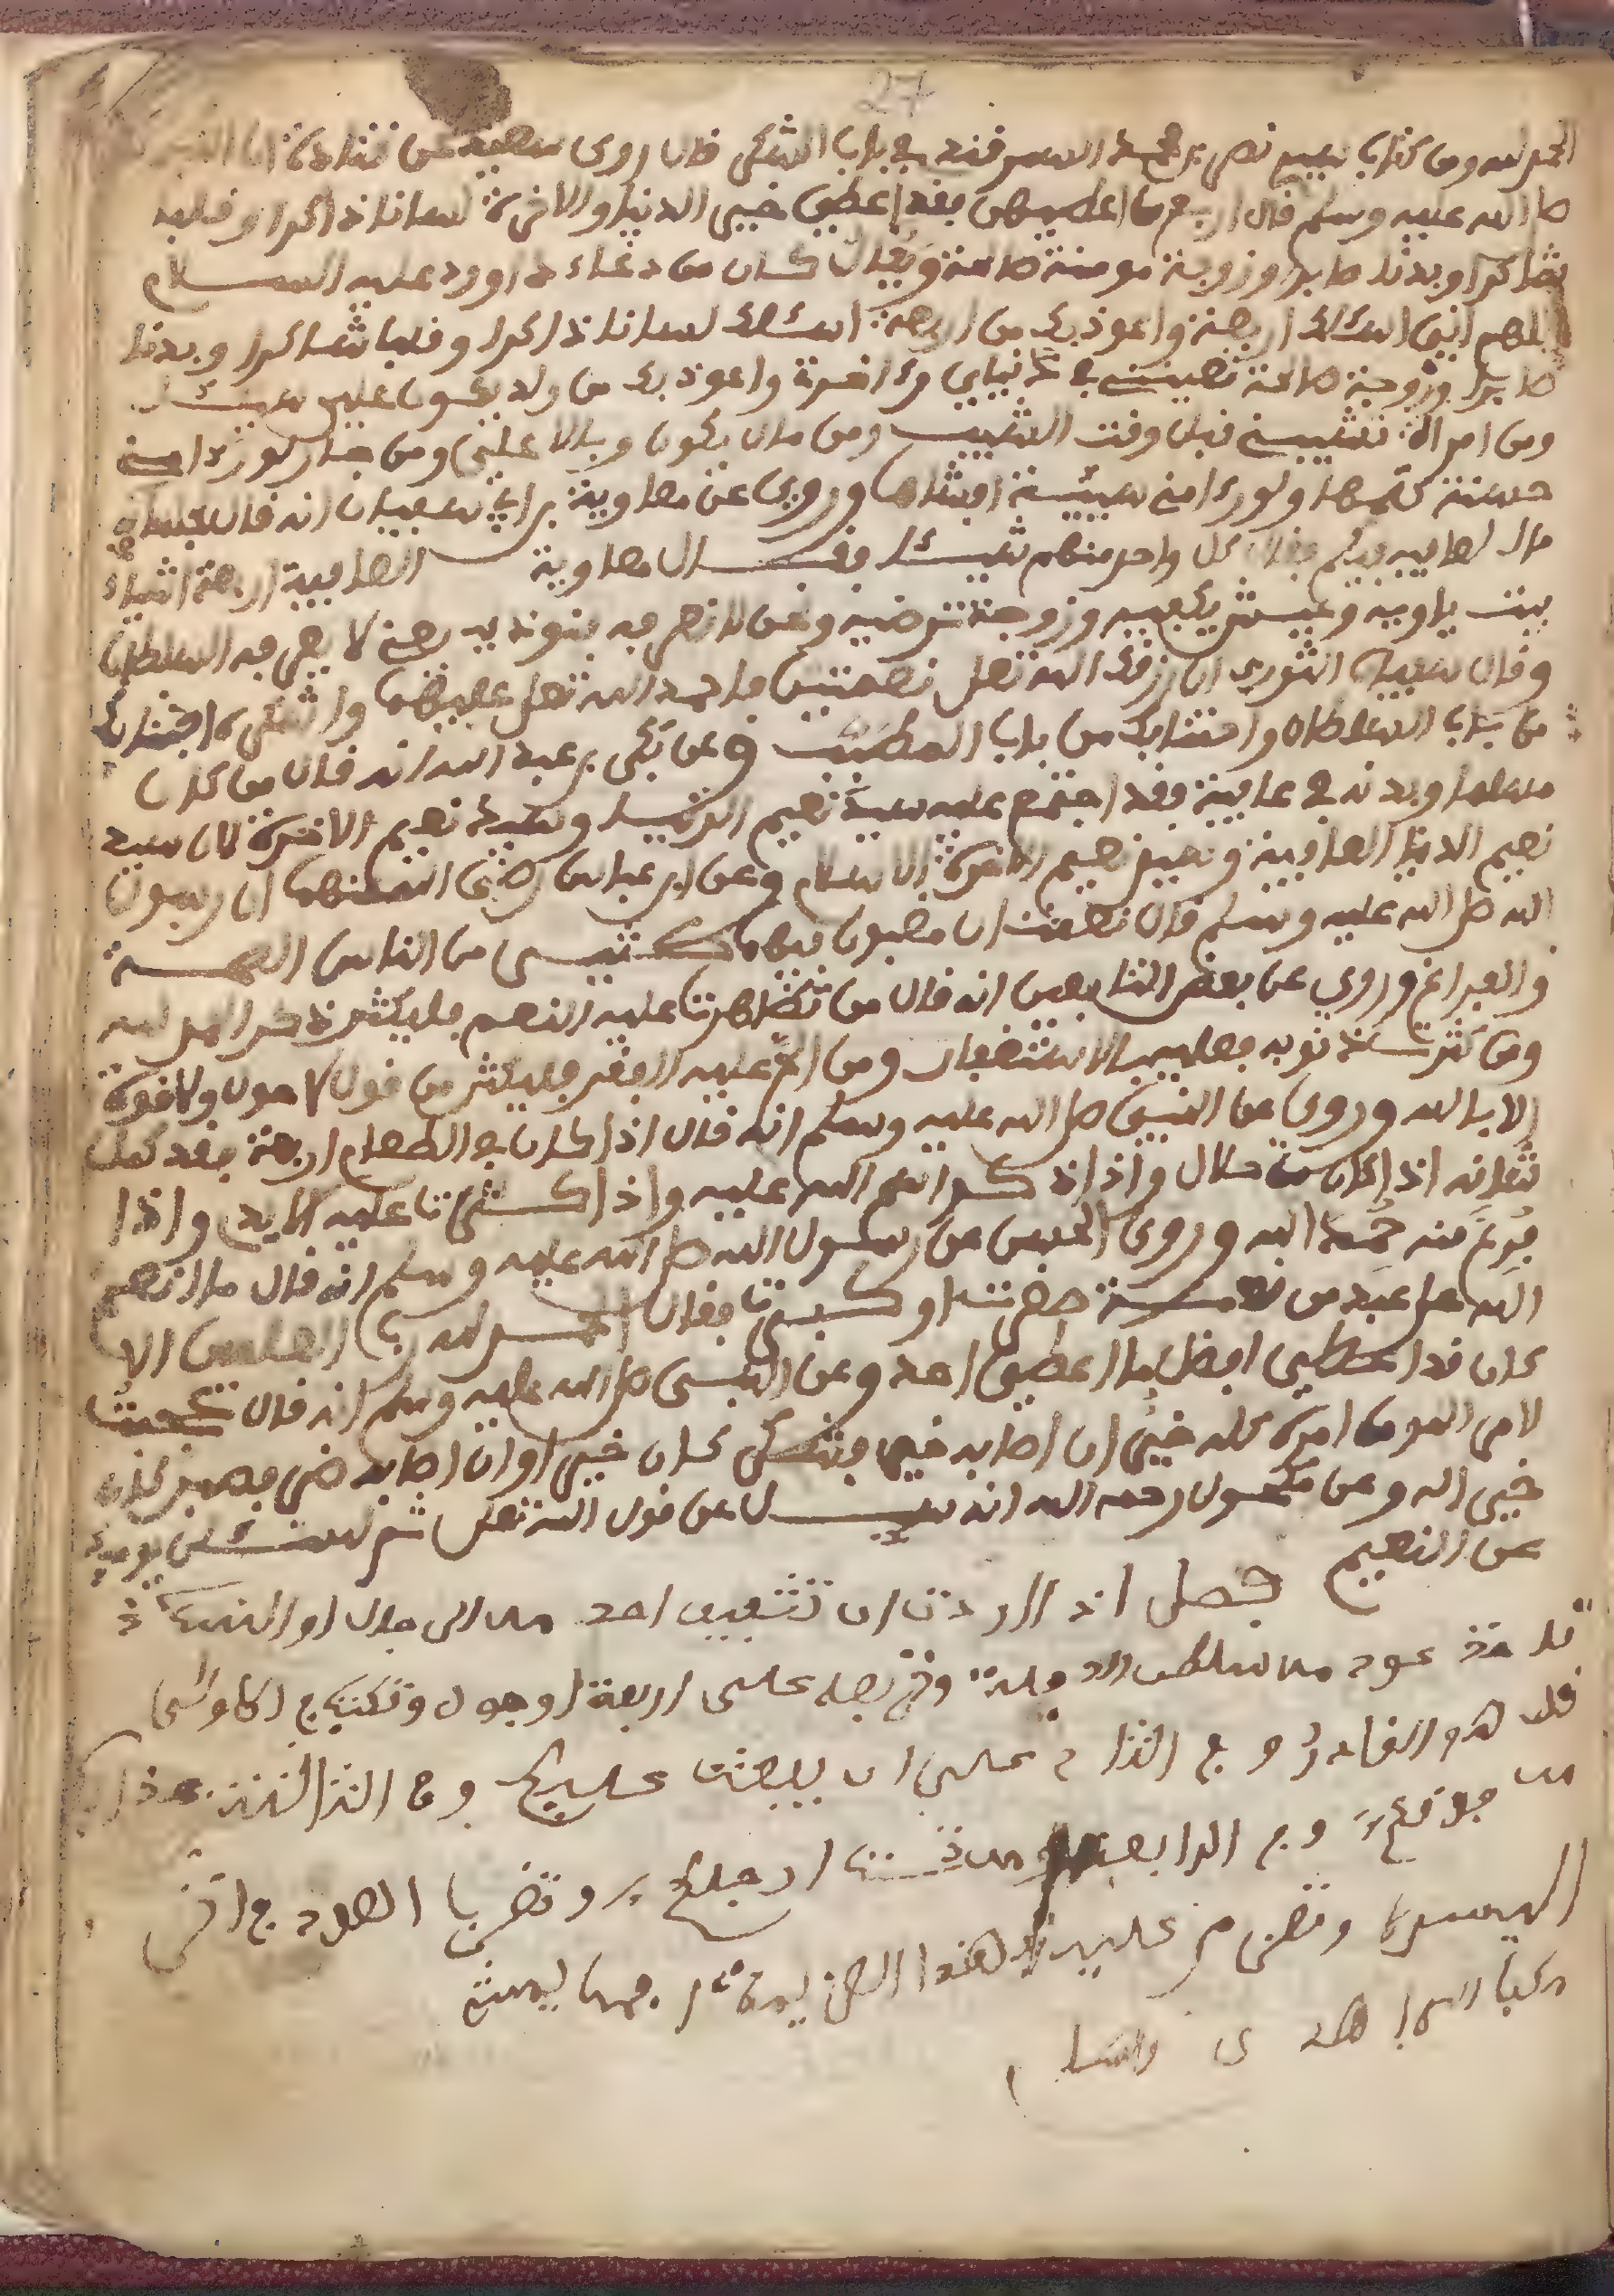 27
الحمد لله ومن كتاب نصر بن محمد السمرقندي في باب الشكر قال روى سعيد عن قتادة ان النبي
صلى الله عليه وسلم قال اربع من اعطيهن فقد اعطي خيري الدنيا والاخرة لسانا ذاكرا وقلبه
شاكرا وبدنا صابرا وزوجة مومنة صالحة ويقال كان من دعاء داوود عليه السلام
اللهم اني اسئلك اربعة واعوذ بك من اربعة اسئلك لسانا ذاكرا وقلبا شاكرا وبدنا
صابرا وزوجة صالحة تعينني في دنياي واخرة واعوذ بك من ولد يكون علي سيدا
ومن امراة تشيبني قبل وقت الشيب ومن مال يكون وبالا علي ومن جار لو رءا مني
حسنة كتمها ولو رءا مني سيئة افشاها وروي عن معاوية بن ابي سفيان انه قال لجلسائه
ما العافية فيكم فقال كل واحد منهم شيئا فقال معاوية العافية اربعة اشياء
بيت ياويه وعيش يكفيه وزوجة ترضيه ونحن لا نعرفه فنوذيه يعني لا يعرفه السلطان
وقال سفيان الثوري ان رزقك الله تعلى نعمتين فاحمد الله تعلى عليهما واشكره اجتنابك
من باب السلطان واجتنابك من باب الطبيب وعن بكر بن عبد الله انه قال من كان
مسلما وبدنه في عافية فقد اجتمع عليه سيد نعيم الدنيا وسيد نعيم الاخرة لان سيد
نعيم الدنيا العافية وسيد نعيم الاخرة الاسلام وعن ابن عباس رضي الله عنهما ان رسول
الله صلى الله عليه وسلم قال نعمتان مغبون فيهما كثير من الناس الصحة
والفراغ وروي عن بعض التابعين انه قال من تظاهرت عليه النعم فليكثر ذكر الحمد لله
ومن كثرت ذنوبه فعليه بالاستغفار ومن الح عليه الفقر فليكثر من قول لا حول ولا قوة
الا بالله وروي عن النبي صلى الله عليه وسلم انه قال اذا كان في الطعام اربعة فقد كمل
شانه اذا كان من حلال واذا ذكر اسم الله عليه واذا كثرت عليه الايدي واذا
فرغ منه حمد الله وروى الحسن عن رسول الله صلى الله عليه وسلم انه قال ما انعم
الله على عبد من نعمة صغرت او كبرت فقال الحمد لله رب العلمين الا
كان قد اعطي افضل مما اعطي احد وعن النبي صلى الله عليه وسلم انه قال عجبت
لامر المومن امره كله خير ان اصابه خير فشكر كان خير او ان اصابه ضر فصبر كان
خير اله وعن مكحول رحمه الله انه سيل عن قول الله تعلى ثم لتسئلن يوميذ
عن النعيم فصل اذا اردت ان احد من الى او
تاخذ عود من على اربعة اوجه وتكتب في الاول
قل هو القادر وفي الثاني على ان يبعث عليكم وفي الثالث عذابا
من فوقكم وفي الرابع ومن تحت ارجلكم وتضرب العود في
اليسرى عليه هذا
والسلام